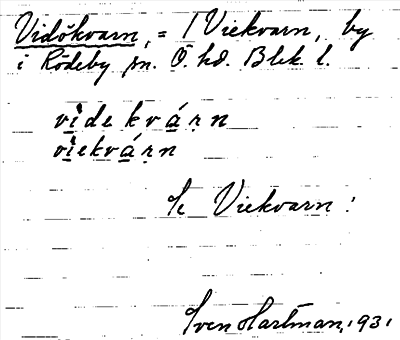 Vidökvarn, = Viekvarn, by
i Rödeby sn. Ö. hd. Blek. l.
vìde kvárn
vìekvárn
Se Viekvarn!
Sven Hartman, 1931